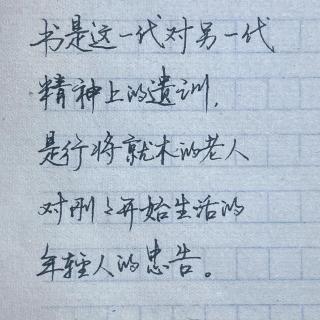 书是这一代对另一代
精神上的遗训,
是行将就木的老人
对刚刚开始生活的
年轻人的忠告。